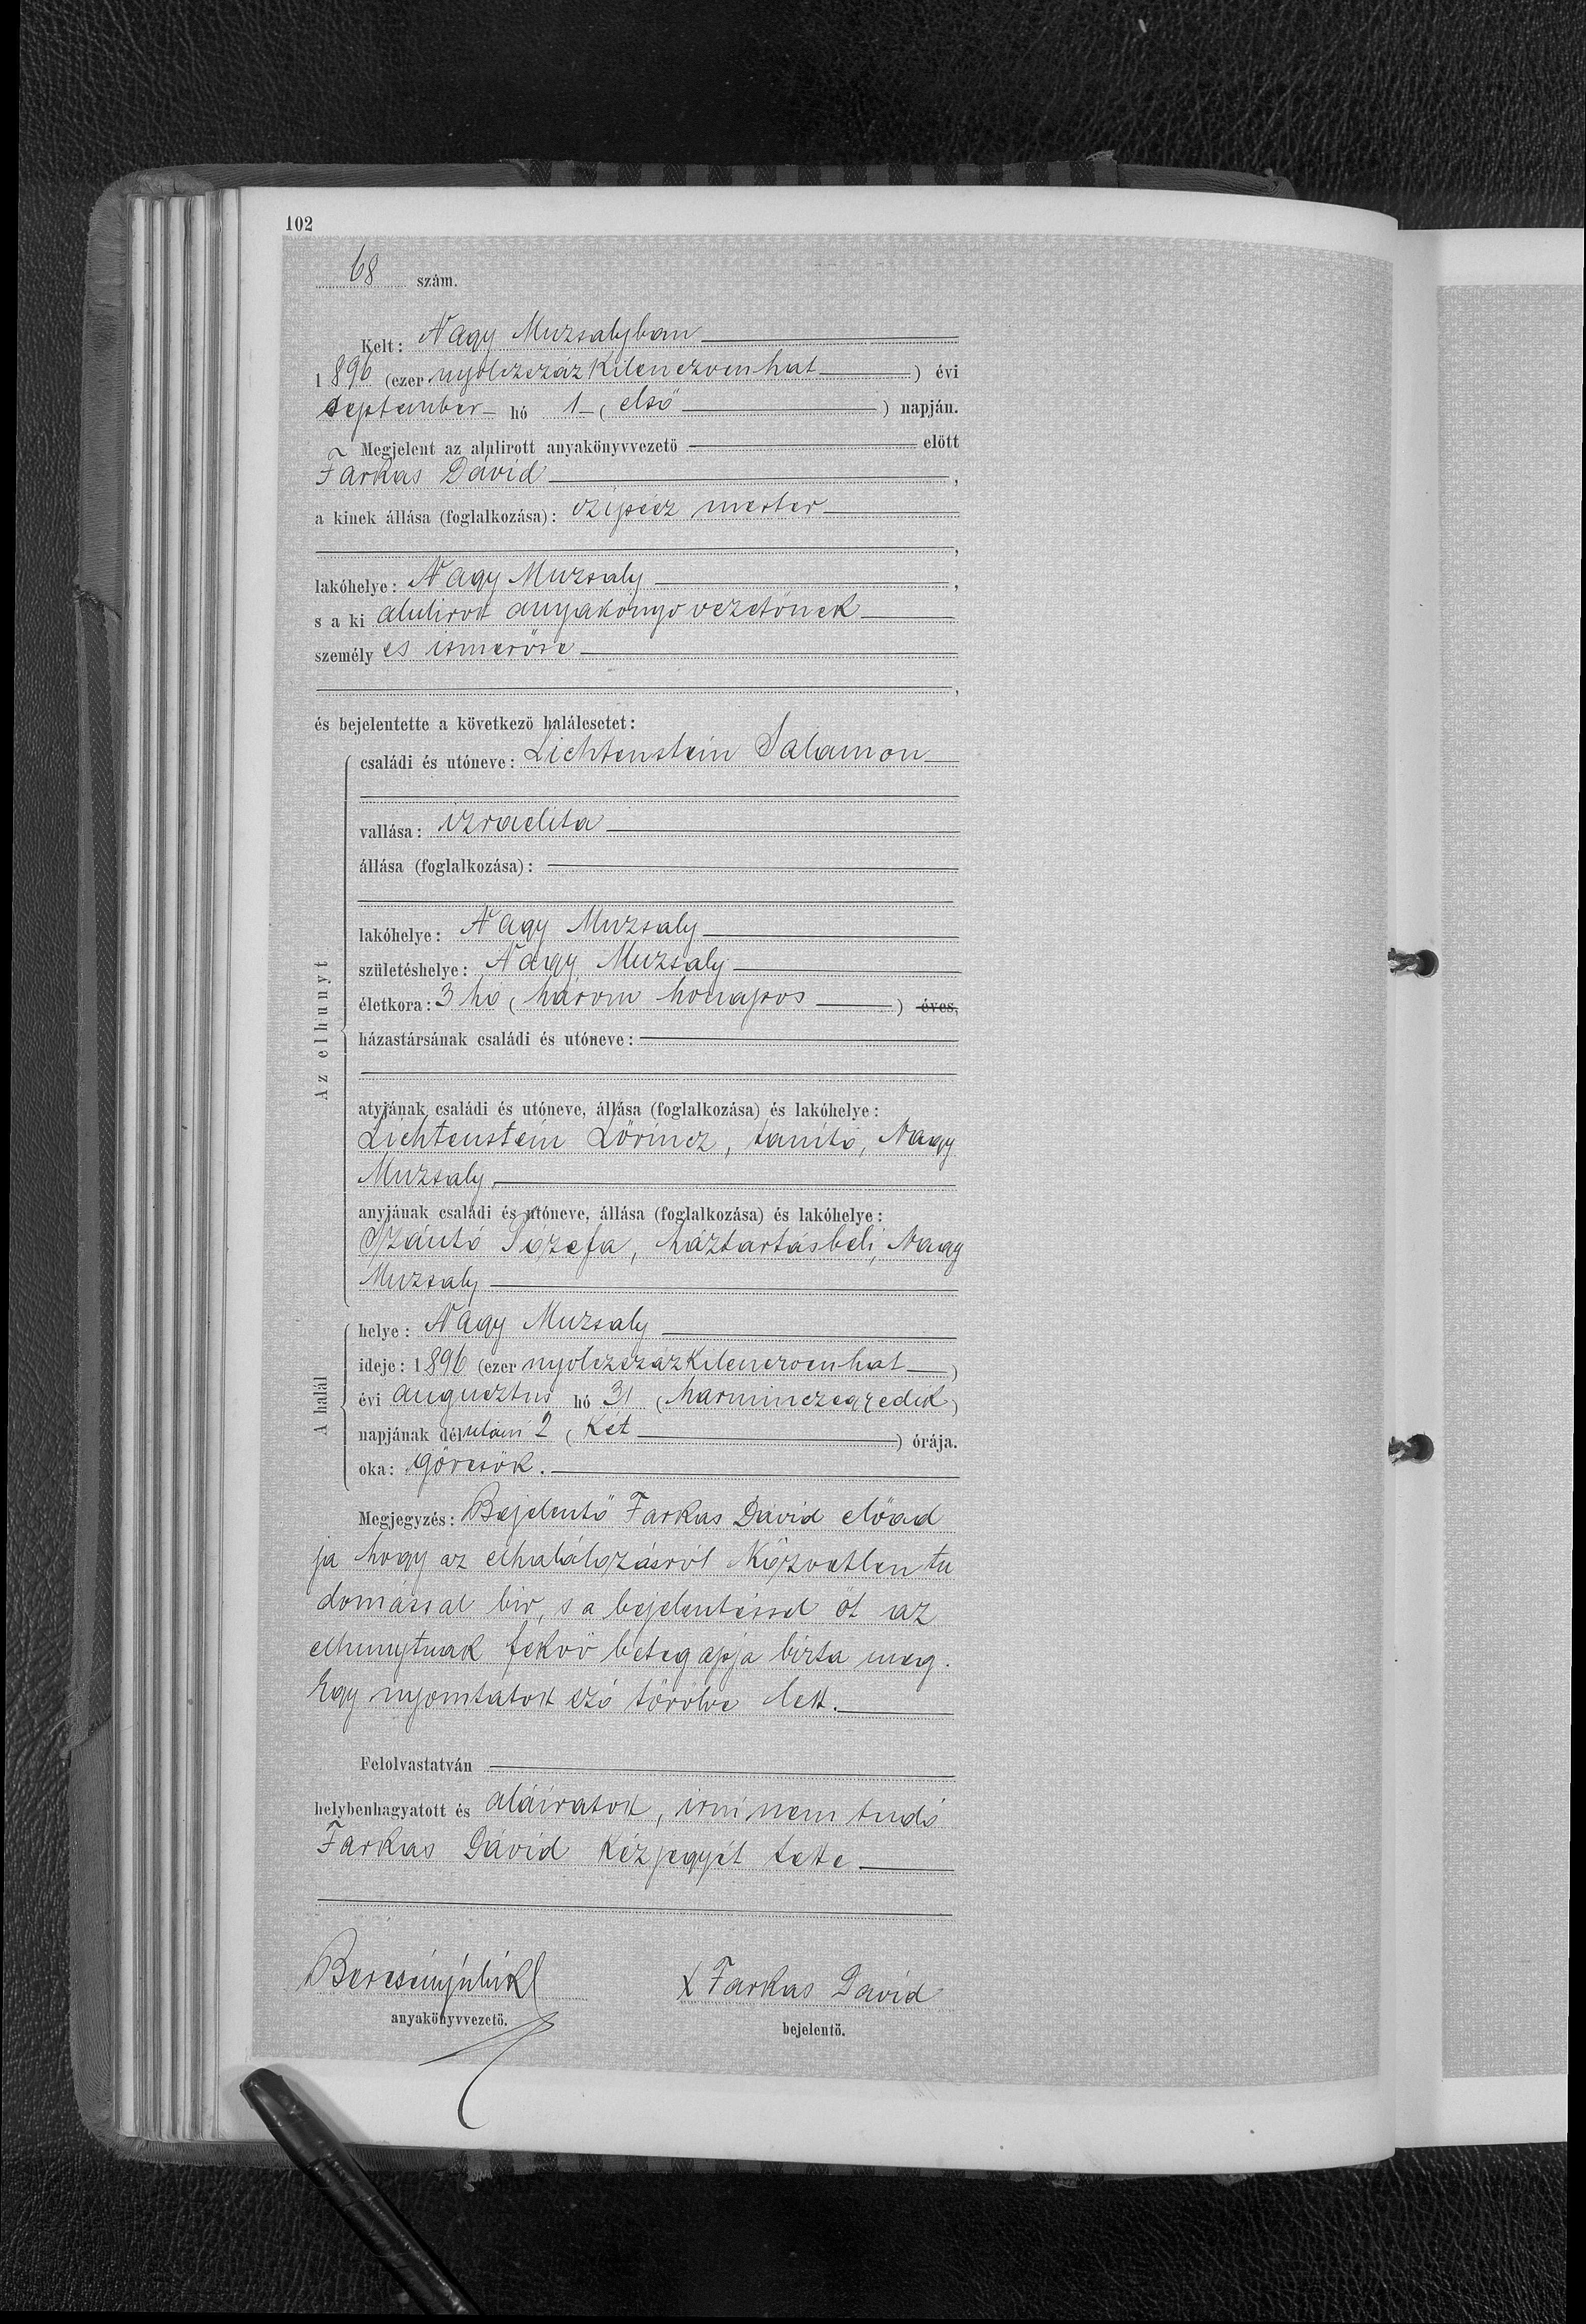 102
68 szám.
Kelt: Nagy Muzsalyban
1896 (ezer nyolczszáz kilenczvenhat) évi
September hó 1 (első) napján.
Megjelent az alulirott anyakönyvvezető előtt
Farkas Dávid,
a kinek állása (foglalkozása): czipész mester
,
lakóhelye: Nagy Muzsaly,
s a ki alulirott anyakönyvvezetőnek
személyes ismerőse
,
és bejelentette a következő halálesetet:
Az elhunyt
családi és utóneve: Lichtenstein Salamon
vallása: izraelita
állása (foglalkozása):
lakóhelye: Nagy Muzsaly
születéshelye: Nagy Muzsaly
életkora: 3 hó (három hónapos) éves,
házastársának családi és utóneve:
atyjának családi és utóneve, állása (foglalkozása) és lakóhelye:
Lichtenstein Lőrincz, tanító, Nagy
Muzsaly
anyjának családi és utóneve, állása (foglalkozása) és lakóhelye:
Szántó Józefa, háztartásbeli, Nagy
Muzsaly
A halál
helye: Nagy Muzsaly
ideje: 1896 (ezer nyolczszázkilenczvenhat)
évi augusztus hó 31 (harminczegyedik)
napjának délutáni 2 (két) órája.
oka: Görcsök.
Megjegyzés: Bejelentő Farkas Dávid előad
ja hogy az elhalálozásról közvetlen tu
domással bir, s a bejelentéssel őt az
elhunytnak fekvő beteg apja bizta meg.
Egy nyomtatott szó törölve lett.
Felolvastatván
helybenhagyatott és aláiratott, irni nem tudó
Farkas Dávid kézjegyét tette
X Farkas Dávid
anyakönyvvezető.
bejelentő.